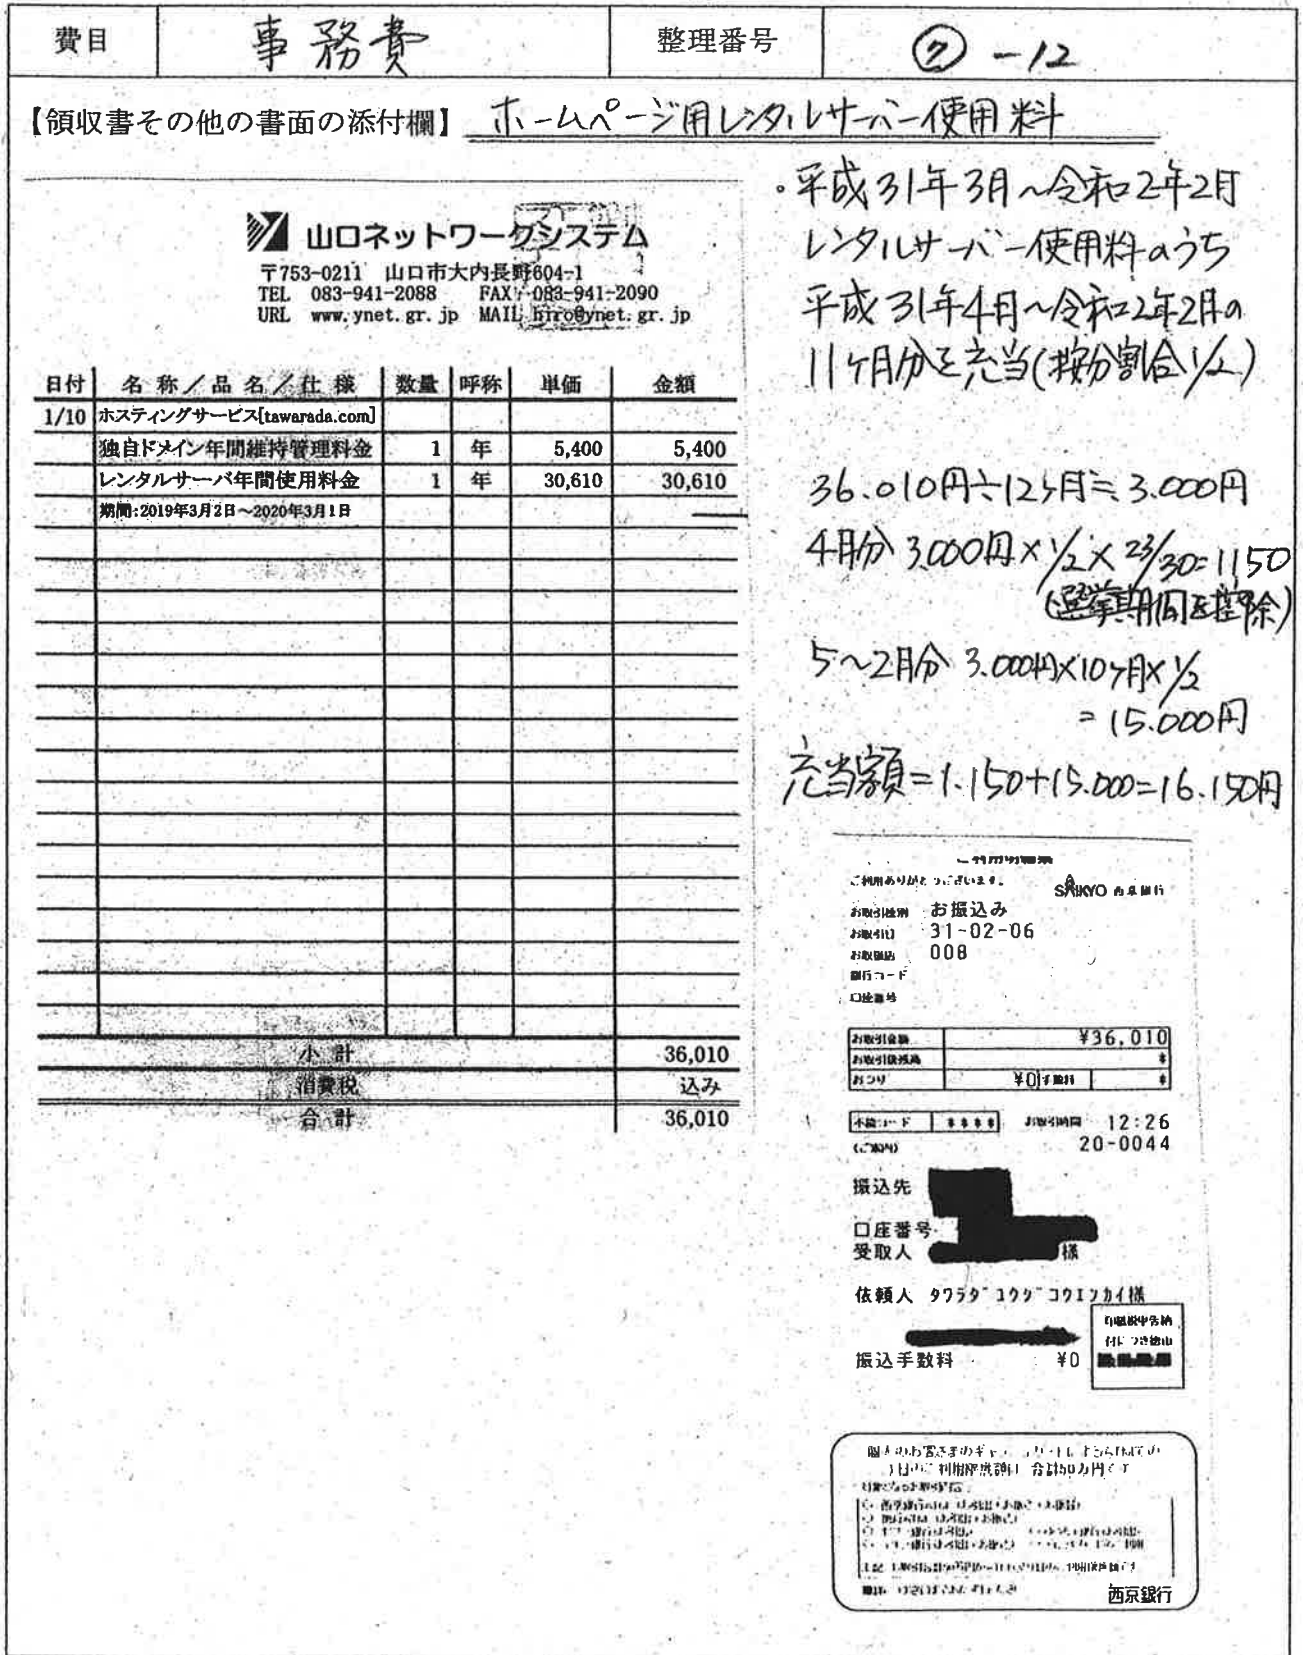 費目 事務費 整理番号 ⑦ -12
【領収書その他の書面の添付欄】 ホームページ用レンタルサーバー使用料
山口ネットワークシステム
〒753-0211 山口市大内長野604-1
TEL 083-941-2088 FAX 083-941-2090
URL www.ynet.gr.jp MAIL hiro@ynet.gr.jp
日付 名称/品名/仕様 数量 呼称 単価 金額
1/10 ホスティングサービス[tawarada.com]
独自ドメイン年間維持管理料金 1 年 5,400 5,400
レンタルサーバ年間使用料金 1 年 30,610 30,610
期間:2019年3月2日~2020年3月1日
小計 36,010
消費税 込み
合計 36,010
・平成31年3月~令和2年2月
レンタルサーバー使用料のうち
平成31年4月~令和2年2月の
11ヶ月分を充当(按分割合1/2)
36.010円÷12ヶ月≒3.000円
4月分 3.000円×1/2×23/30=1150
(選挙期間を控除)
5~2月分 3.000円×10ヶ月×1/2
=15.000円
充当額=1.150+15.000=16.150円
ご利用明細票
ご利用ありがとうございます。 SAIKYO 西京銀行
お取引種別 お振込み
お取引日 31-02-06
お取扱店 008
銀行コード
口座番号
お取引金額 ¥36,010
お取引後残高 *
おつり ¥0 手数料 *
不能コード **** お取引時間 12:26
(ご案内) 20-0044
振込先
口座番号
受取人 様
依頼人 タワラダ ユウジ コウエンカイ様
印紙税申告納
付につき徳山
振込手数料 ¥0
西京銀行